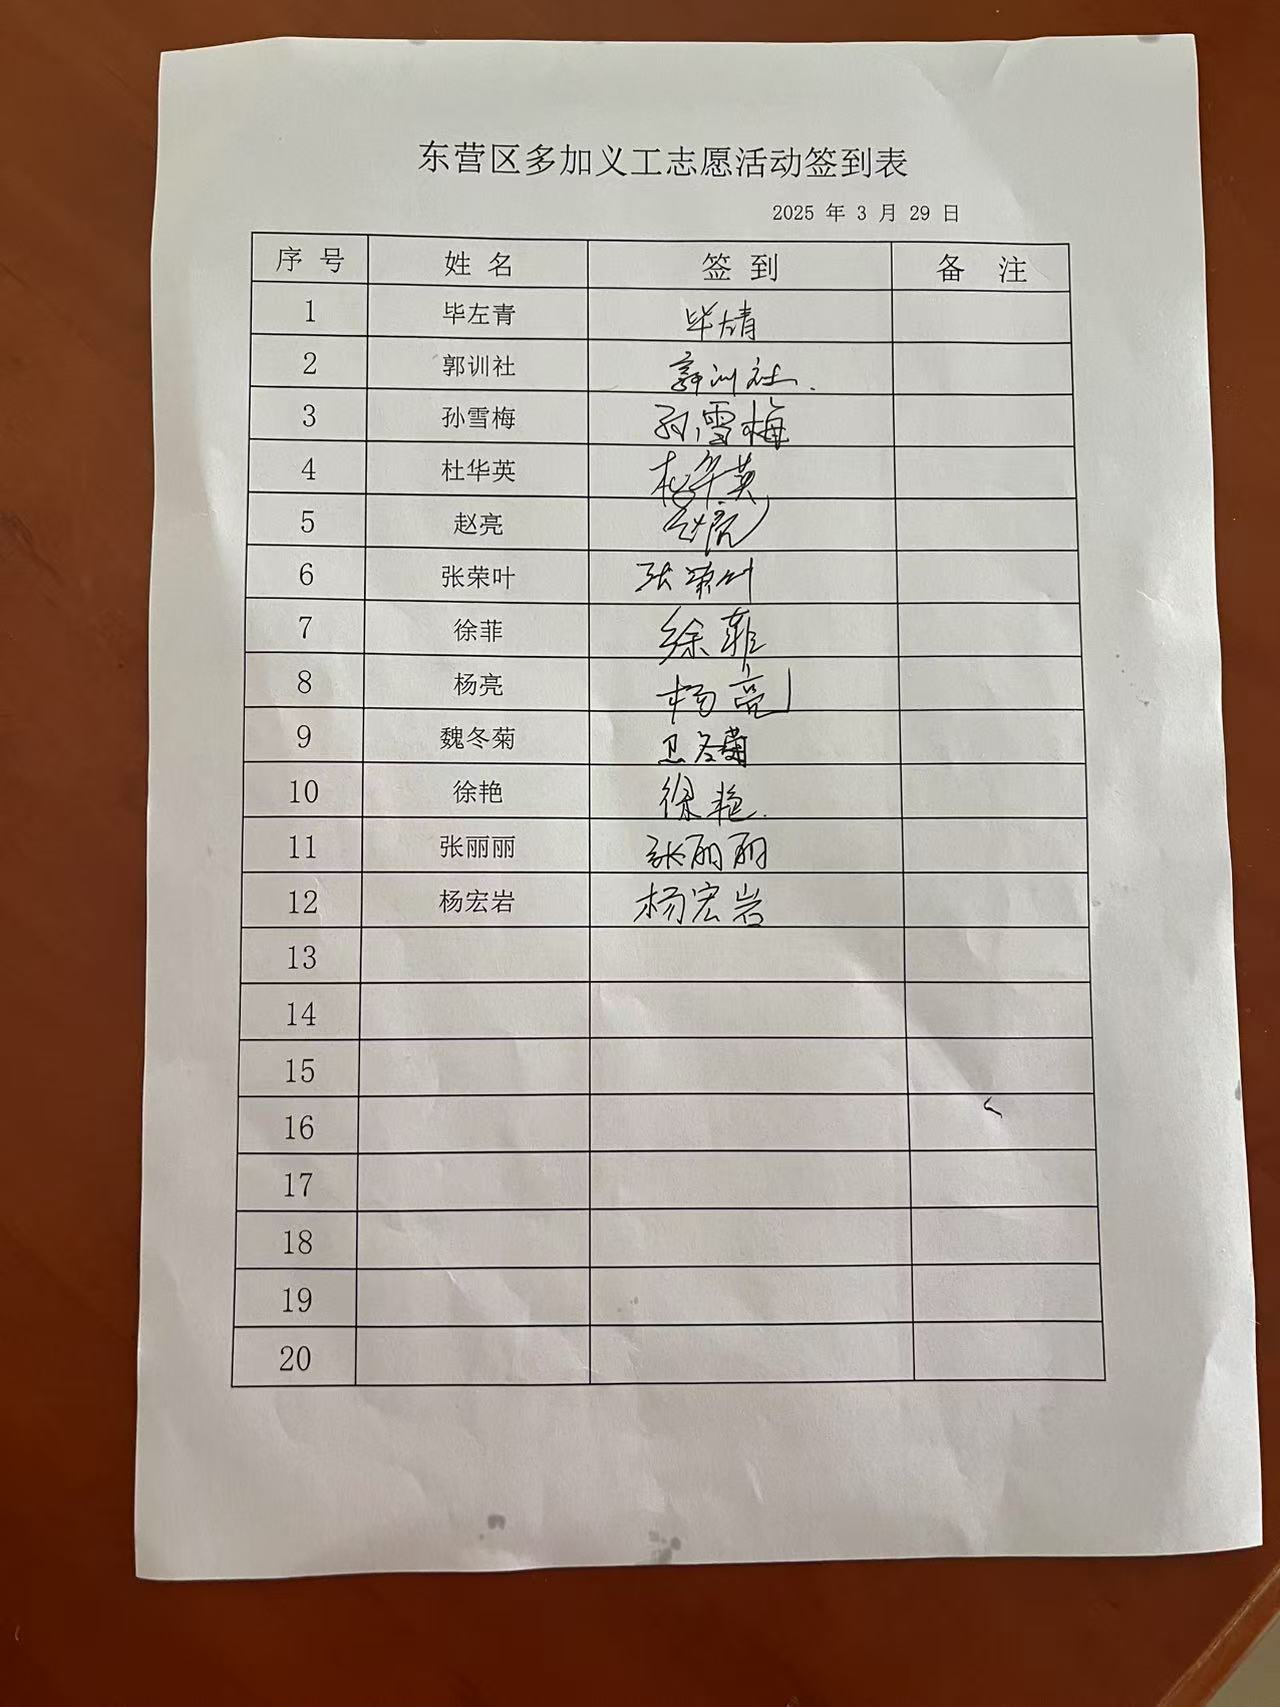 东营区多加义工志愿活动签到表
2025 年 3 月 29 日
序 号 姓 名 签 到 备 注
1 毕左青 毕左青
2 郭训社 郭训社.
3 孙雪梅 孙雪梅
4 杜华英 杜华英
5 赵亮 赵亮
6 张荣叶 张荣叶
7 徐菲 徐菲
8 杨亮 杨亮
9 魏冬菊 卫冬菊
10 徐艳 徐艳.
11 张丽丽 张丽丽
12 杨宏岩 杨宏岩
13
14
15
16
17
18
19
20